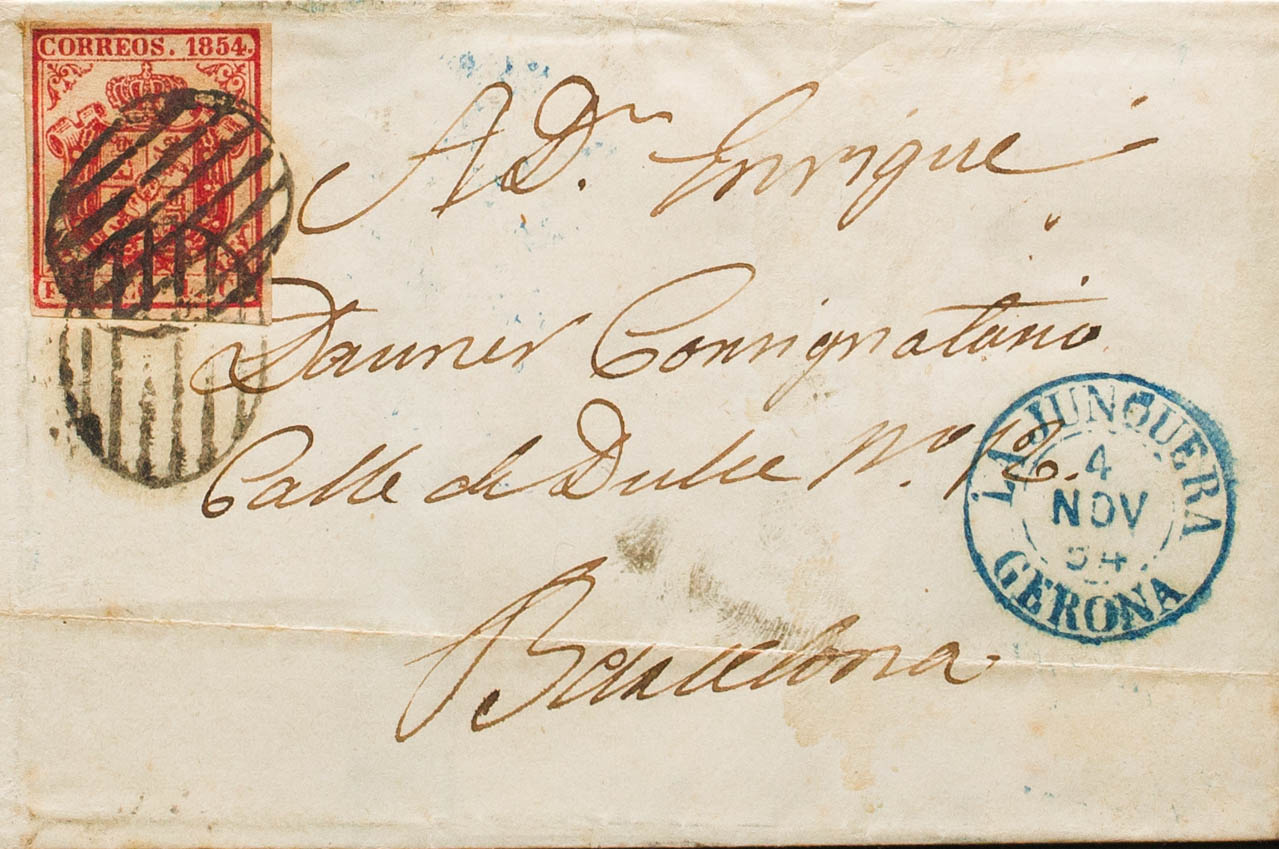 CORREOS. 1854.
A Dn. Enrique
Dauner Consignatario
Calle de Dulce No. 12.
Barcelona.
LA JUNQUERA
4
NOV
54
GERONA